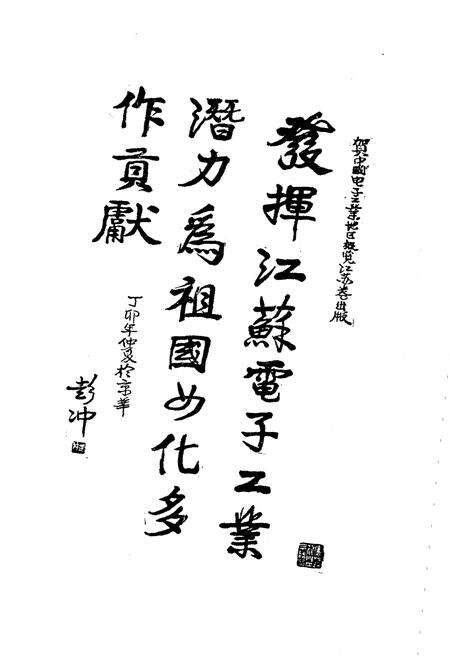 贺中國电子工業地区概览江苏卷出版
發揮江蘇電子工業
潛力爲祖國四化多
作貢獻
丁卯年仲夏於京華
彭冲